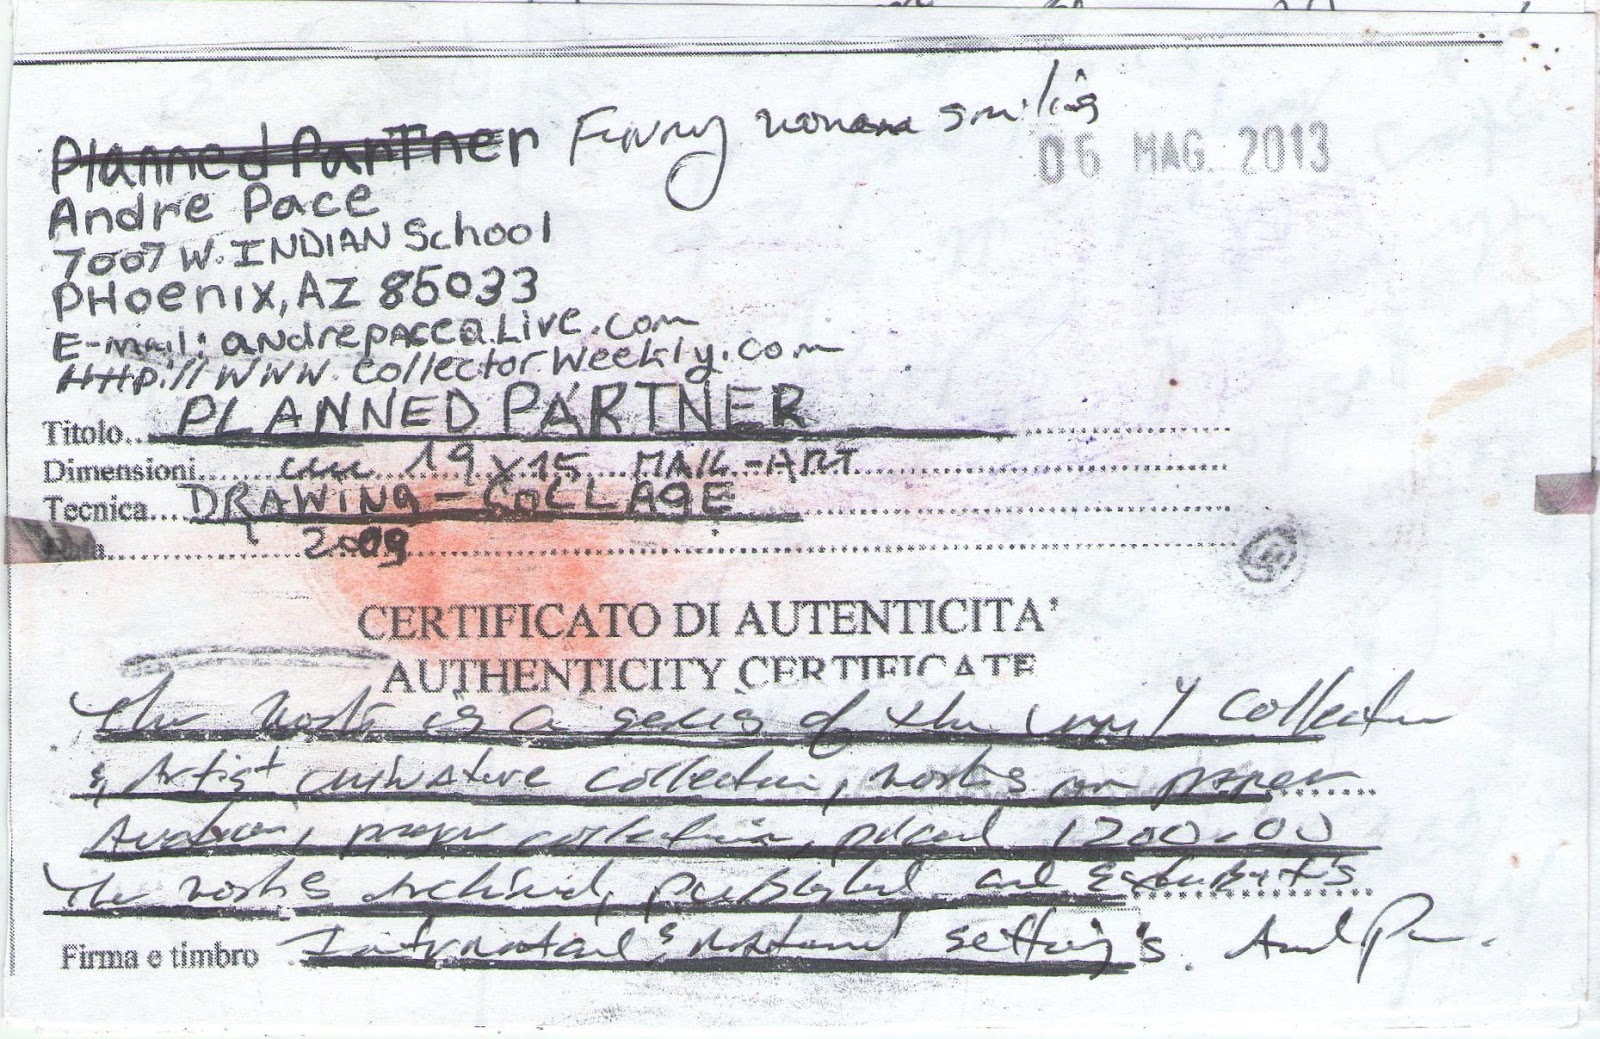 Planned Partner Funny woman smiling
06 MAG. 2013
Andre Pace
7007 W. INDIAN School
PHoenix, AZ 85033
E-mail: andrepace@Live.com
Http://www.collectorWeekly.com
Titolo... PLANNED PARTNER
Dimensioni... cm 19 x 15 MAIL-ART
Tecnica... DRAWING - COLLAGE
2009
CERTIFICATO DI AUTENTICITA'
AUTHENTICITY CERTIFICATE
The works is a series of the Collection
& Artist collection, works on paper
collection, 1200.00
The works Archived, published and Exhibits
Firma e timbro setting's.